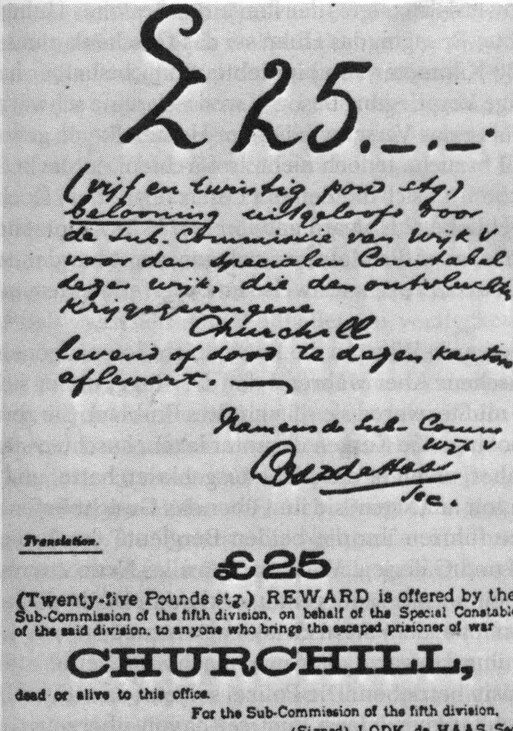 £25.-.-
(vijf en twintig pond stg.)
belooning uitgeloofd door
de Sub-Commissie van Wijk V
voor den specialen Constabel
dezer wijk, die den ontvluchte
Krijgsgevangene
Churchill
levend of dood te dezen kantore
aflevert.
Namens de Sub-Comm
Wijk
de Haas
Sec.
Translation.
£25
(Twenty-five Pounds stg.) REWARD is offered by the
Sub-Commission of the fifth division, on behalf of the Special Constable
of the said division, to anyone who brings the escaped prisoner of war
CHURCHILL,
dead or alive to this office.
For the Sub-Commission of the fifth division,
(Signed) LODK. de HAAS Sec